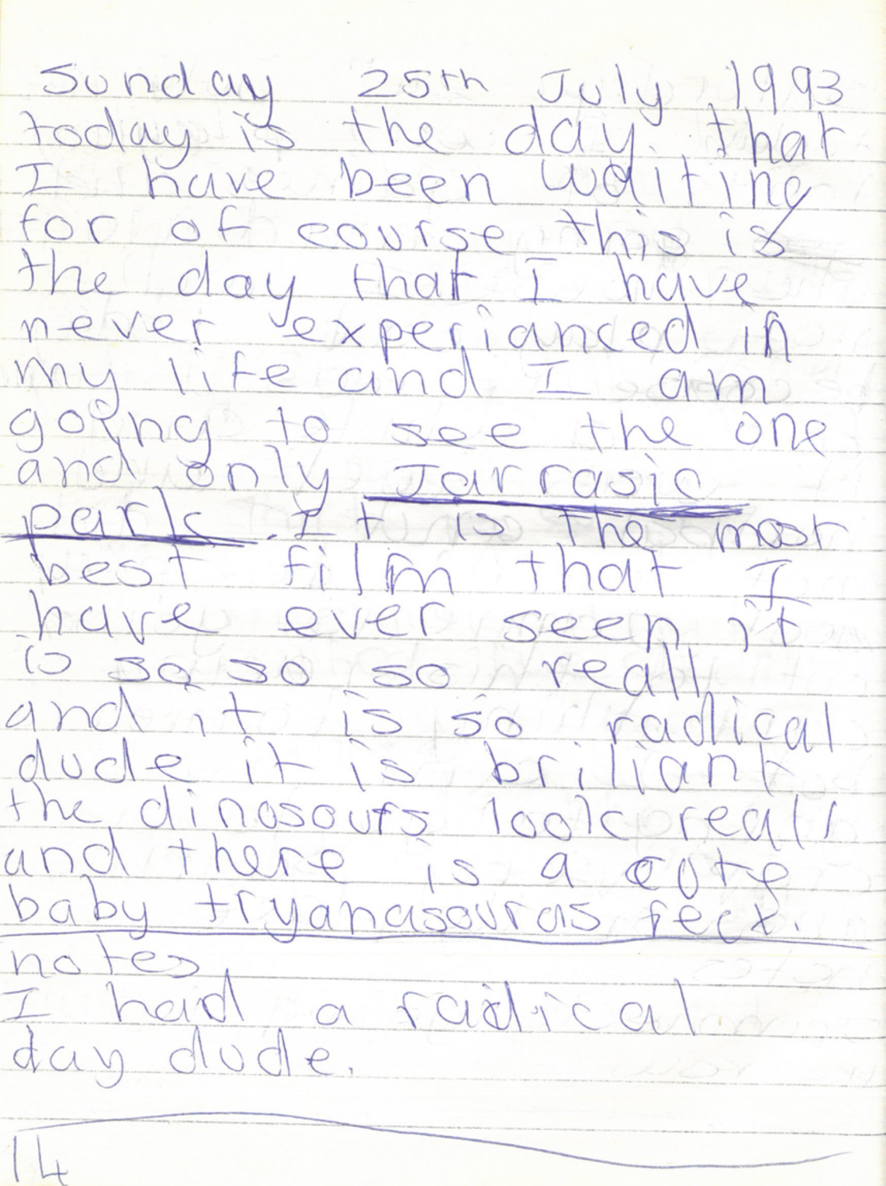 Sunday 25th July 1993
today is the day that
I have been waiting
for of course this is
the day that I have
never experianced in
my life and I am
going to see the one
and only Jarrasic
park. It is the most
best film that I
have ever seen it
is so so so reall
and it is so radical
dude it is briliant
the dinosours look reall
and there is a cute
baby tryanasouras recx.
notes
I had a radical
day dude.
14